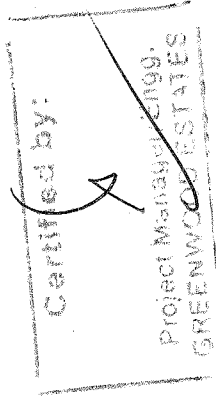 Certified by:
Project Manager, Engg.
GREENWOOD ESTATES